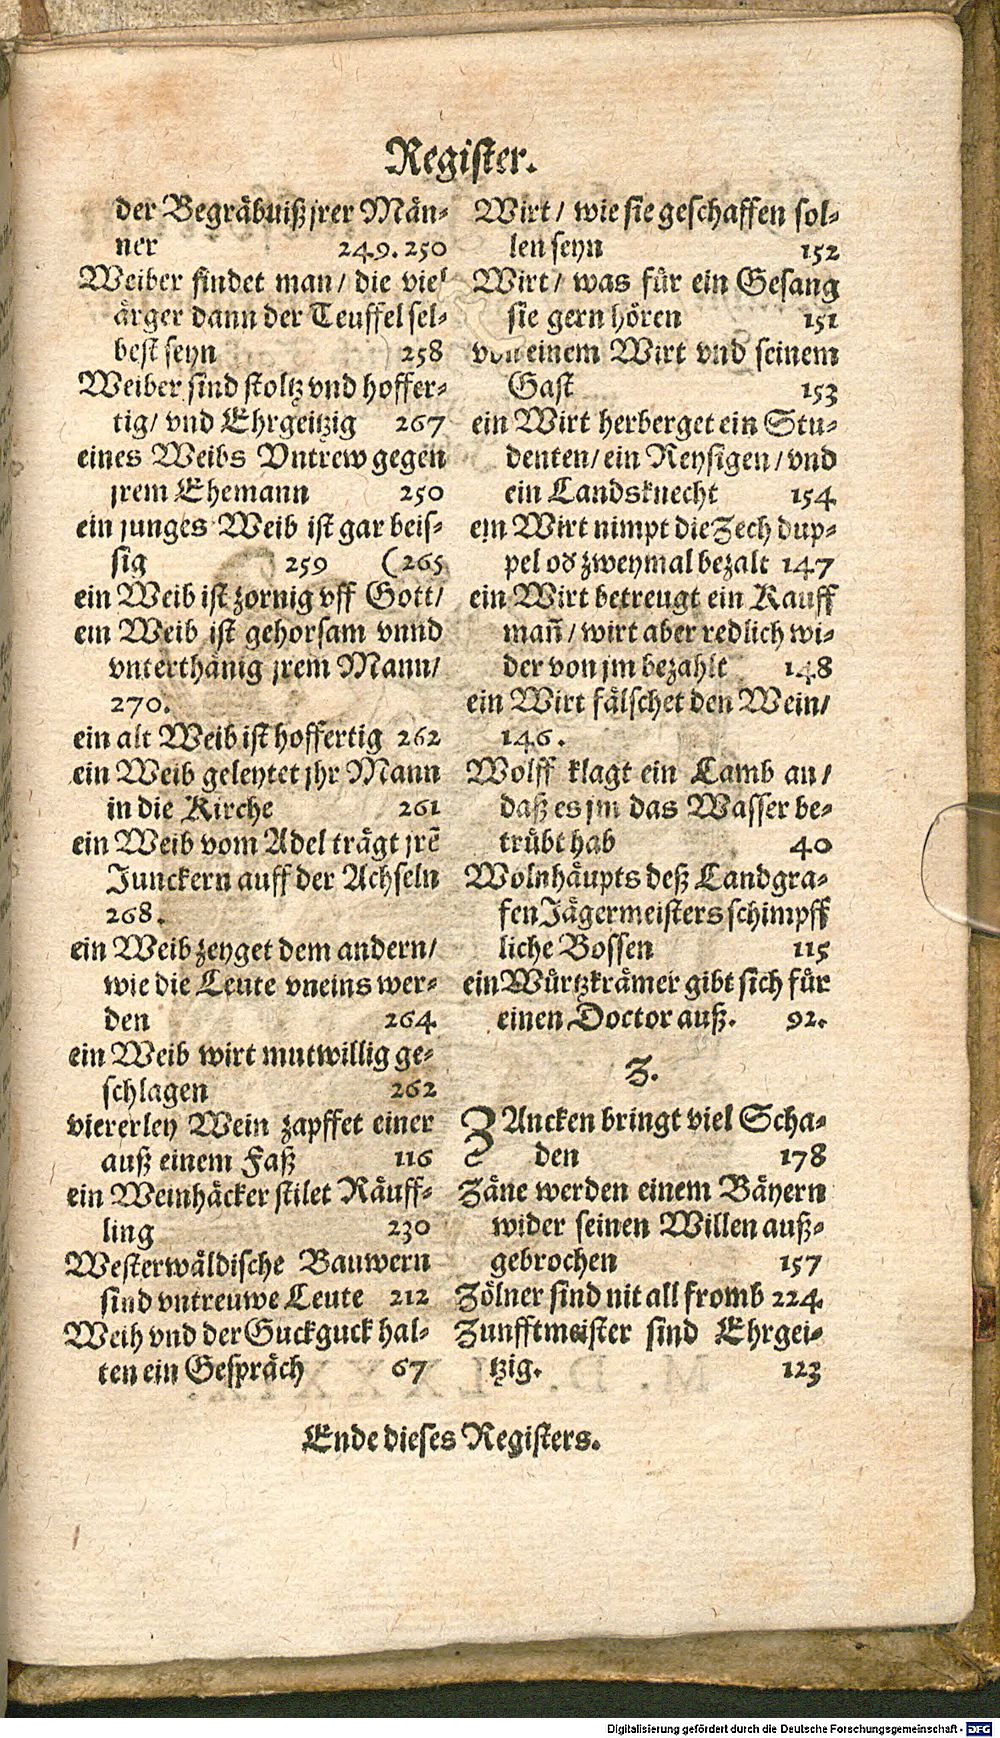 Register.
der Begräbniß jrer Män-
ner 249. 250
Weiber findet man/ die viel
ärger dann der Teuffel sel-
best seyn 258
Weiber sind stoltz vnd hoffer-
tig/ vnd Ehrgeitzig 267
eines Weibs Vntrew gegen
jrem Ehemann 250
ein junges Weib ist gar beis-
sig 259 (265
ein Weib ist zornig vff Gott/
ein Weib ist gehorsam vnnd
vnterthänig jrem Mann/
270.
ein alt Weib ist hoffertig 262
ein Weib geleytet jhr Mann
in die Kirche 261
ein Weib vom Adel trägt jrē
Junckern auff der Achseln
268.
ein Weib zeyget dem andern/
wie die Leute vneins wer-
den 264
ein Weib wirt mutwillig ge-
schlagen 262
viererley Wein zapffet einer
auß einem Faß 116
ein Weinhäcker stilet Räuff-
ling 230
Westerwäldische Bauwern
sind vntreuwe Leute 212
Weih vnd der Guckguck hal-
ten ein Gespräch 67
Wirt/ wie sie geschaffen sol-
len seyn 152
Wirt/ was für ein Gesang
sie gern hören 151
von einem Wirt vnd seinem
Gast 153
ein Wirt herberget ein Stu-
denten/ ein Reysigen/ vnd
ein Landsknecht 154
ein Wirt nimpt die Zech dup-
pel oď zweymal bezalt 147
ein Wirt betreugt ein Kauff
mañ/ wirt aber redlich wi-
der von jm bezahlt 148
ein Wirt fälschet den Wein/
146.
Wolff klagt ein Lamb an/
daß es jm das Wasser be-
trübt hab 40
Wolnhäupts deß Landgra-
fen Jägermeisters schimpff
liche Bossen 115
ein Würtzkrämer gibt sich für
einen Doctor auß. 92.
Z.
ZAncken bringt viel Scha-
den 178
Zäne werden einem Bäyern
wider seinen Willen auß-
gebrochen 157
Zölner sind nit all fromb 224.
Zunfftmeister sind Ehrgei-
tzig. 123
Ende dieses Registers.
Digitalisierung gefördert durch die Deutsche Forschungsgemeinschaft - DFG